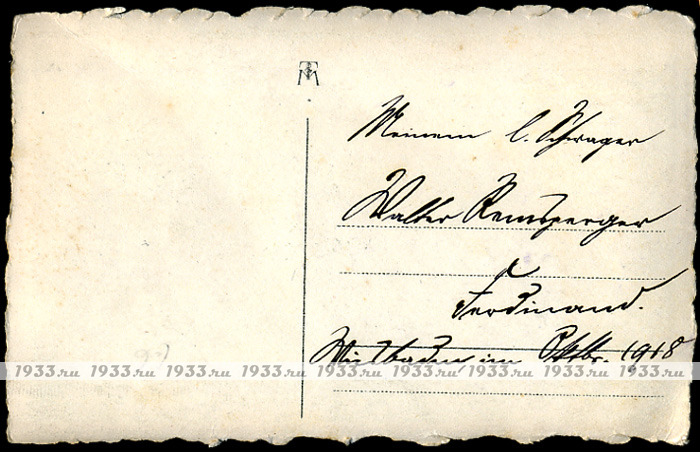 Meinem l. Schwager
Walter Remsperger
Ferdinand.
Wiesbaden im Oktbr. 1918
1933.ru 1933.ru 1933.ru 1933.ru 1933.ru 1933.ru 1933.ru 1933.ru